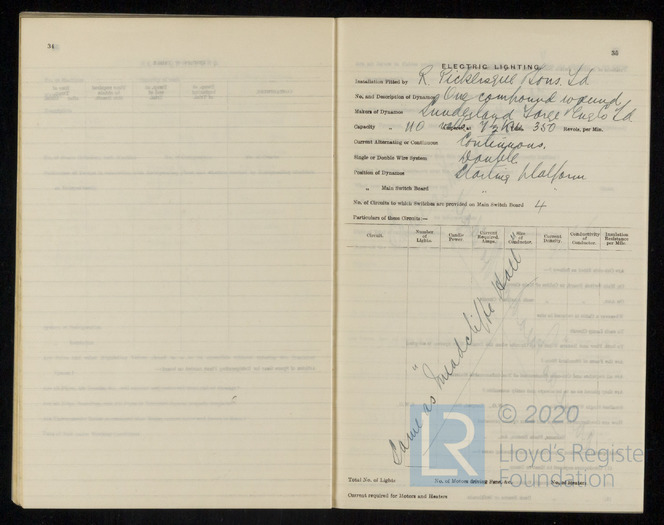 34
35
ELECTRIC LIGHTING
Installation Fitted by R. Pickersgill & Sons. Ld
No. and Description of Dynamos One compound wound
Makers of Dynamos Sunderland Forge & Eng Co Ld
Capacity 110 volts 350 Revols. per Min.
Current Alternating or Continuous Continuous.
Single or Double Wire System Double
Position of Dynamos Starting platform
„ Main Switch Board „ „
No. of Circuits to which Switches are provided on Main Switch Board 4
Particulars of these Circuits:—
Circuit. Number of Lights. Candle Power. Current Required. Amps. Size of Conductor. Current Density. Conductivity of Conductor. Insulation Resistance per Mile.
Same as "Meadcliffe Hall"
Total No. of Lights No. of Motors driving Fans, &c. No. of Heaters
Current required for Motors and Heaters
LR © 2020
Lloyd's Register
Foundation